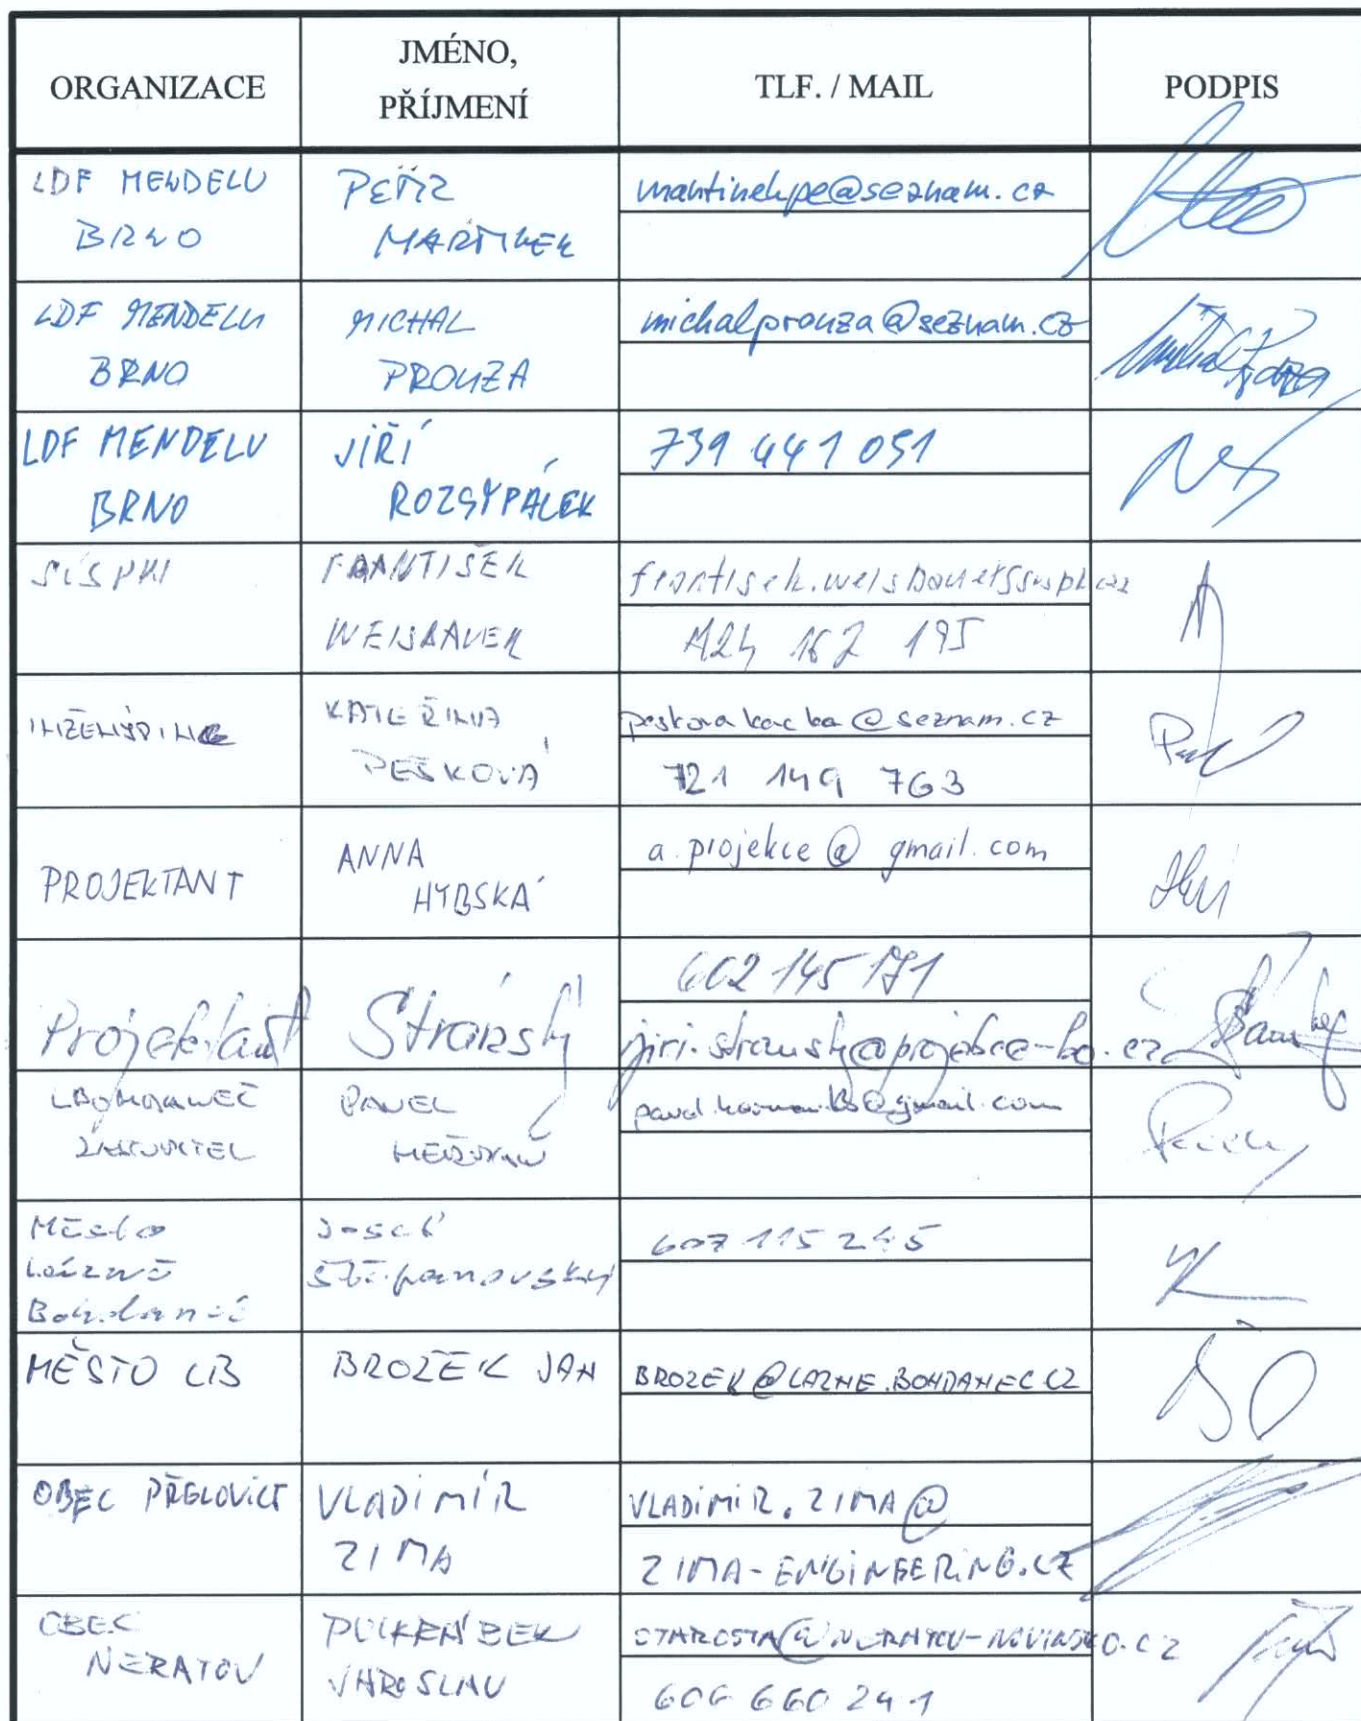 ORGANIZACE
JMÉNO,
PŘÍJMENÍ
TLF. / MAIL
PODPIS
LDF MENDELU
BRNO
PETR
MARTINEK
martinekpe@seznam.cz
LDF MENDELU
BRNO
MICHAL
PROUZA
michalprouza@seznam.cz
LDF MENDELU
BRNO
JIŘÍ
ROZSYPÁLEK
739 441 051
FRANTIŠEK
WEISBAUER
INŽENÝRING
KATEŘINA
PEŠKOVÁ
peskovakacka@seznam.cz
721 149 763
PROJEKTANT
ANNA
HYBSKÁ
a.projekce@gmail.com
Projektant
Stránský
602 145 171
PAVEL
Město
Lázně
Bohdaneč
Josef
Štěpanovský
607 115 245
MĚSTO LB
BROŽEK JAN
BROZEK@LAZNE.BOHDANEC.CZ
OBEC PŘELOVICE
VLADIMÍR
ZIMA
VLADIMIR.ZIMA@
ZIMA-ENGINEERING.CZ
OBEC
NERATOV
JAROSLAV
STAROSTA@NERATOV-NOVINSKO.CZ
606 660 241